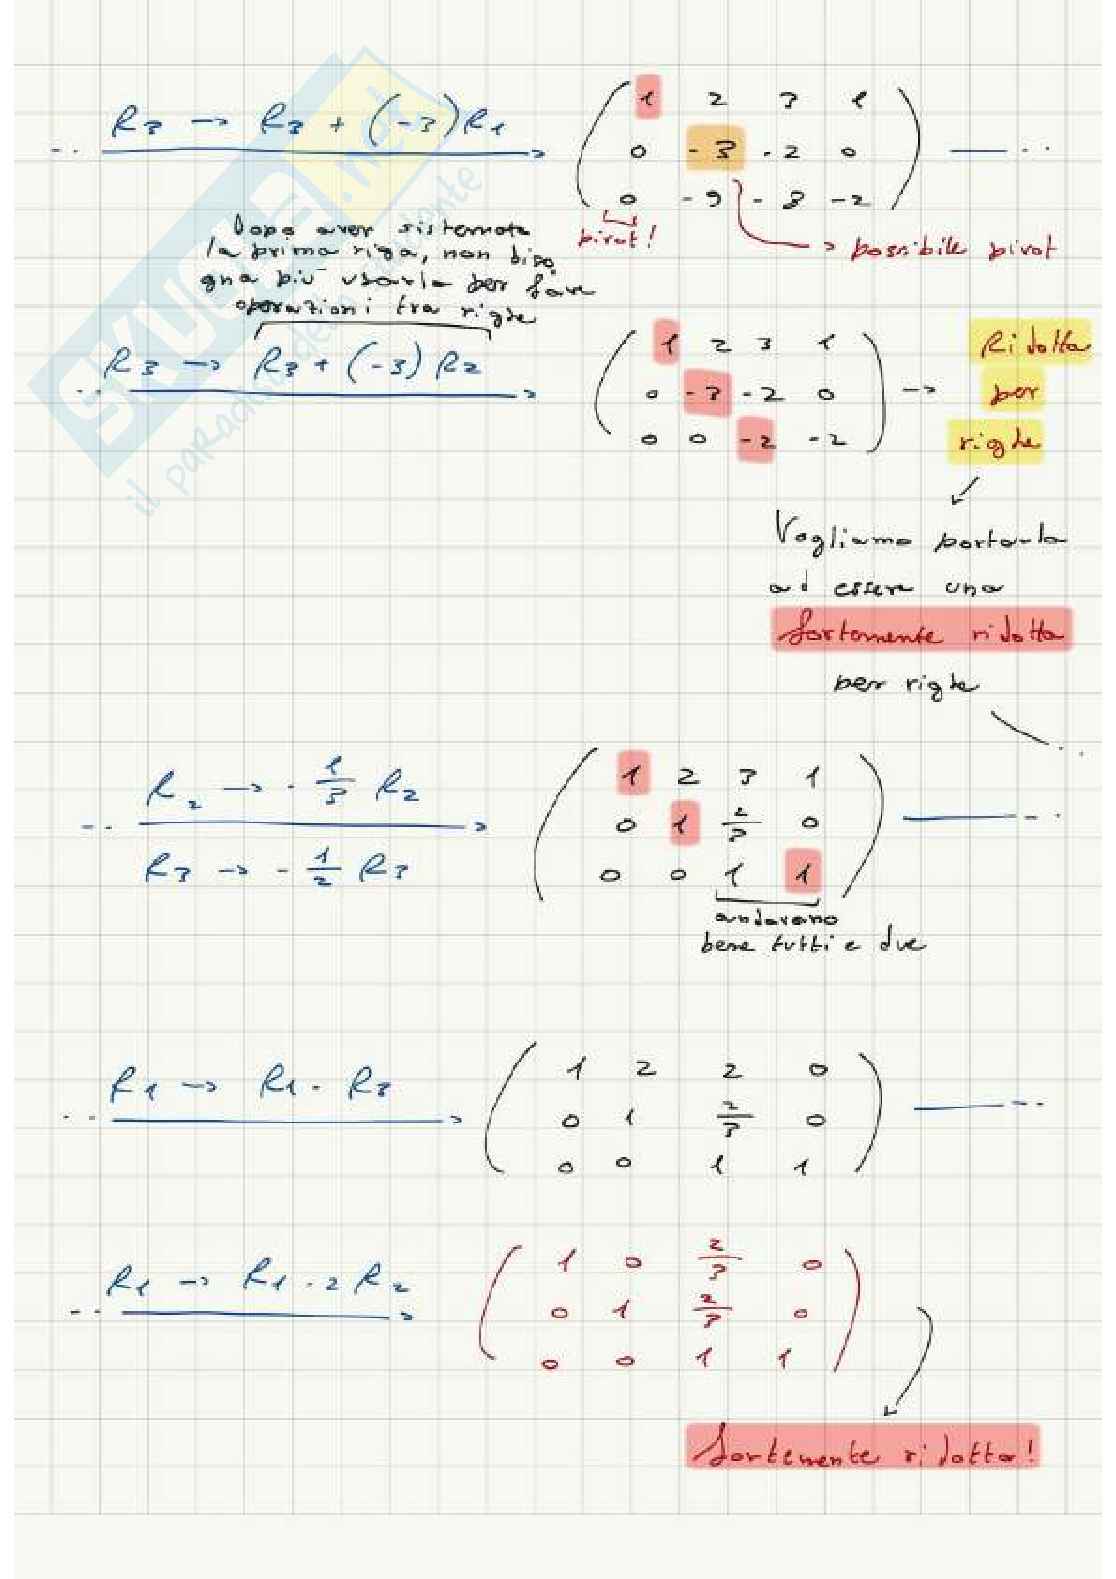 R3 → R3 + (-3)R1
1 2 3 1
0 -3 -2 0
0 -9 -8 -2
pivot!
possibile pivot
Dopo aver sistemato
la prima riga, non biso
gna più usarla per fare
operazioni tra righe
R3 → R3 + (-3) R2
1 2 3 1
0 -3 -2 0
0 0 -2 -2
→ Ridotta
per
righe
Vogliamo portarla
ad essere una
fortemente ridotta
per righe
R2 → -1/3 R2
R3 → -1/2 R3
1 2 3 1
0 1 2/3 0
0 0 1 1
andavano
bene tutti e due
R1 → R1 - R3
1 2 2 0
0 1 2/3 0
0 0 1 1
R1 → R1 - 2 R2
1 0 2/3 0
0 1 2/3 0
0 0 1 1
fortemente ridotta!
SKUOLA.net
il paradiso dello studente